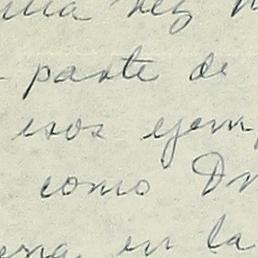 una vez
parte de
esos ejem
como Dn
en la